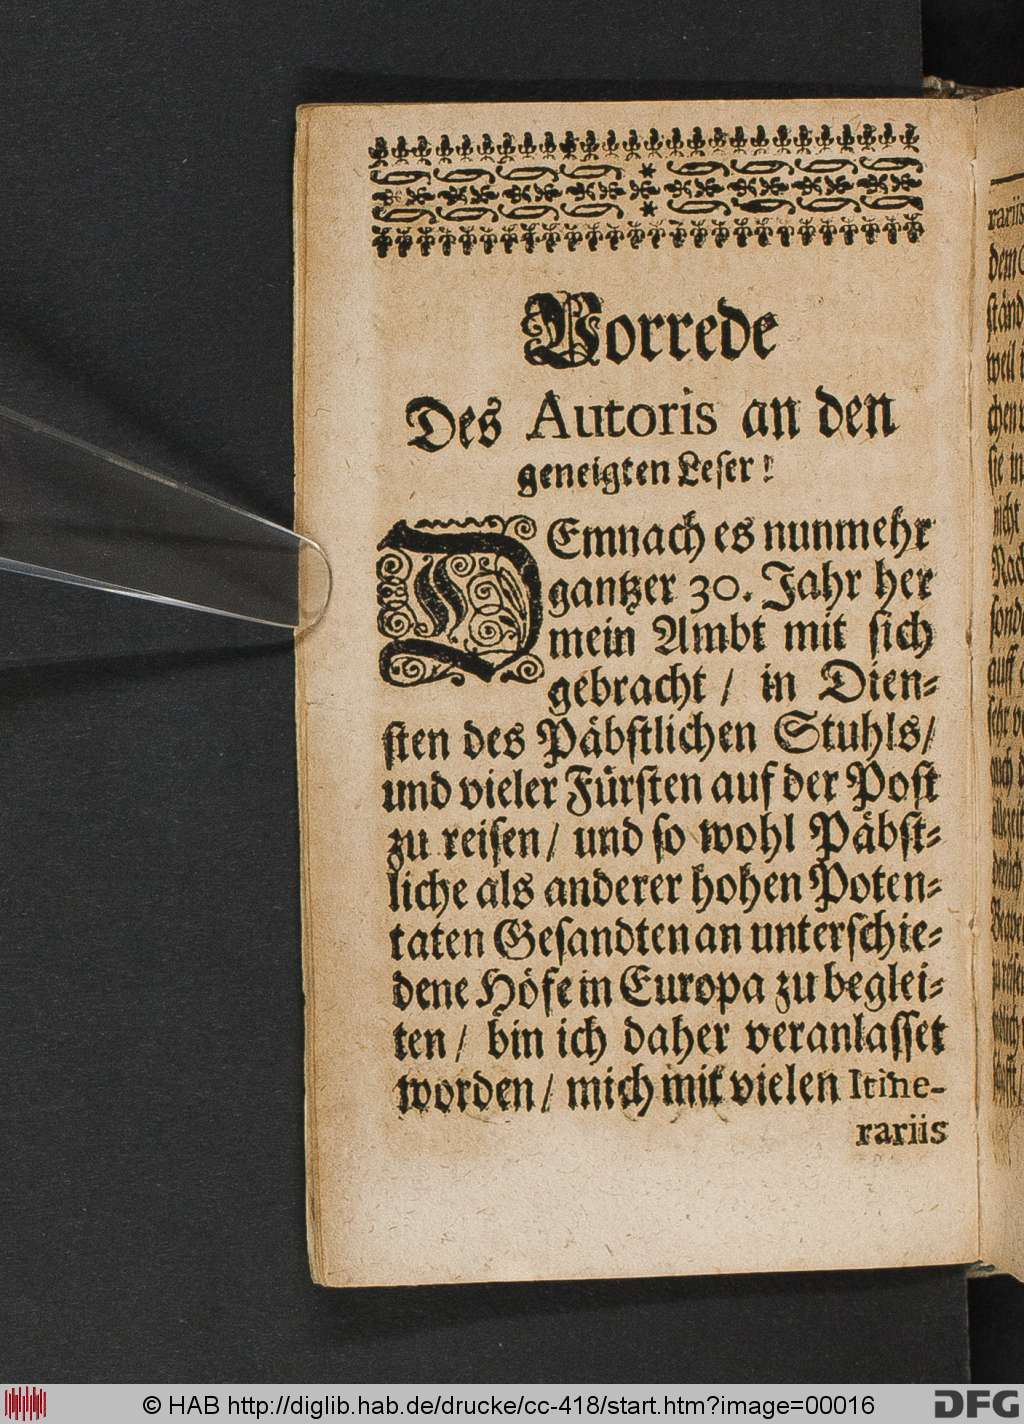 Vorrede
Des Autoris an den
geneigten Leser!
DEmnach es nunmehr
gantzer 30. Jahr her
mein Ambt mit sich
gebracht / in Dien-
sten des Päbstlichen Stuhls /
und vieler Fürsten auf der Post
zu reisen / und so wohl Päbst-
liche als anderer hohen Poten-
taten Gesandten an unterschie-
dene Höfe in Europa zu beglei-
ten / bin ich daher veranlasset
worden / mich mit vielen Itine-
rariis
© HAB http://diglib.hab.de/drucke/cc-418/start.htm?image=00016
DFG